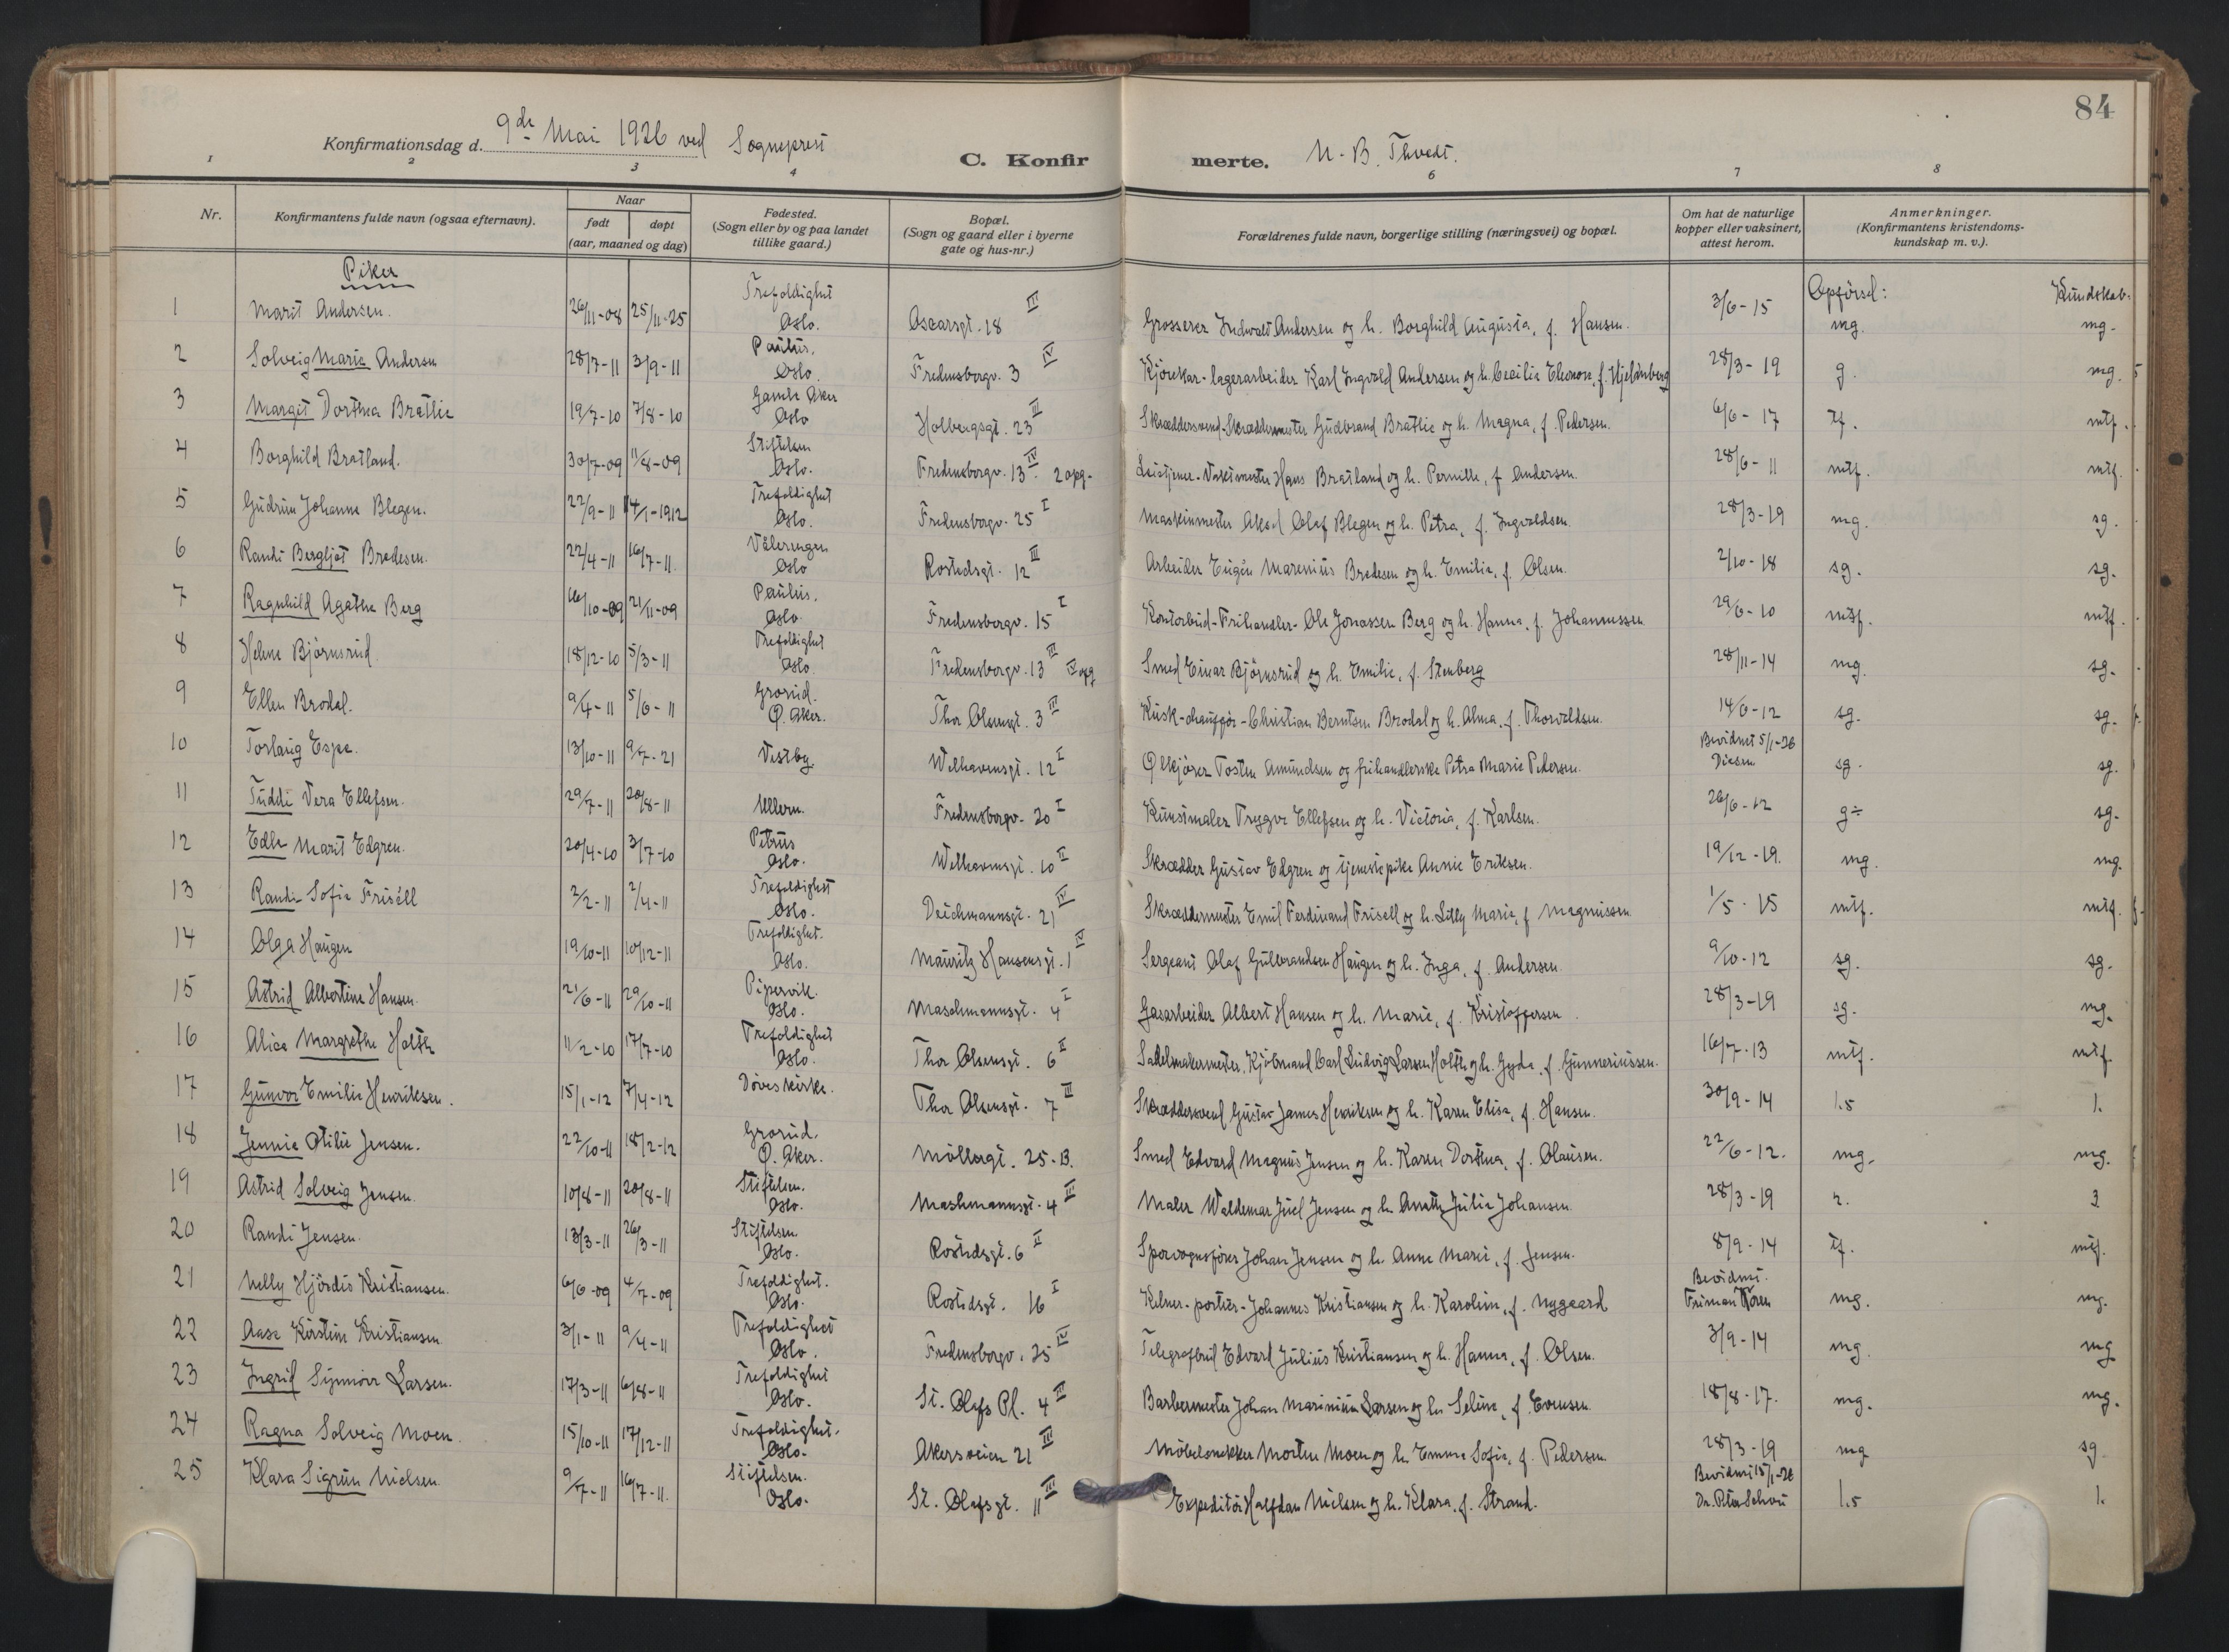 84
Konfirmationsdag d. 9de Mai 1926 ved Sogneprest
C. Konfirmerte. N. B. Thvedt.
1 2 3 4 6 7 8
Nr. Konfirmantens fulde navn (ogsaa efternavn). Naar født døpt (aar, maaned og dag) Fødested. (Sogn eller by og paa landet tillike gaard.) Bopæl. (Sogn og gaard eller i byerne gate og hus-nr.) Forældrenes fulde navn, borgerlige stilling (næringsvei) og bopæl. Om hat de naturlige kopper eller vaksinert, attest herom. Anmerkninger. (Konfirmantens kristendomskundskap m. v.).
Piker Opførsel: Kundskab.
1 Marit Andersen. 26/11-08 25/11-25 Trefoldighet Oslo. Oscarsgt. 18 III Grosserer Andersen og h. Borghild Augusta, f. Hansen. 3/6-15 mg. mg.
2 Solveig Marie Andersen 28/7-11 3/9-11 Paulus. Oslo. Fredensborgv. 3 IV Kjørekar-lagerarbeider Karl Ingvald Andersen og h. Cecilie Eleonore, f. Hjelmberg 28/3-19 g. mg.
3 Margit Dorthea Bratlie 19/7-10 7/8-10 Gamle Aker Oslo Holbergsgt. 23 III Skræddersvend-Skræddermester Gudbrand Bratlie og h. Magna, f. Pedersen. 6/6-17 tf. mtf.
4 Borghild Bratland. 30/7-09 11/8-09 Stiftelsen Oslo. Fredensborgv. 13 IV 2 opg. Vaktmester Hans Bratland og h. Pernille, f. Andersen. 28/6-11 mtf. mtf.
5 Gudrun Johanne Blegen. 22/9-11 14/1-1912 Trefoldighet Oslo. Fredensborgv. 25 I Maskinmester Aksel Olaf Blegen og h. Petra, f. Ingvaldsen. 28/3-19 mg. sg.
6 Randi Bergljot Bredesen. 22/4-11 16/7-11. Vålerengen Oslo Rostedsgt. 12 III Arbeider Eugén Marenius Bredesen og h. Emilie, f. Olsen. 2/10-18 sg. sg.
7 Ragnhild Agathe Berg 16/10-09 21/11-09 Paulus. Oslo. Fredensborgv. 15 I Kontorbud-Frihandler-Ole Jonassen Berg og h. Hanna, f. Johannessen 29/6-10 mtf. mtf.
8 Helene Bjørnsrud. 18/12-10 5/3-11 Trefoldighet Oslo. Fredensborgv. 13 III IV opg Smed Einar Bjørnsrud og h. Emilie, f. Stenberg 28/11-14 mg. sg.
9 Ellen Brodal. 9/4-11 5/6-11 Grorud. Ø. Aker. Thor Olsensgt. 3 III Kusk-chauffør-Christian Berntsen Brodal og h. Alma, f. Thorvaldsen. 14/6-12 sg. sg.
10 Torlaug Espe. 13/10-11 9/7-21 Vestby. Welhavensgt. 12 I Ølkjører Tosten Amundsen og frihandlerske Petra Marie Pedersen. Bevidnet 5/1-26 Diesen sg. sg.
11 Tuddi Vera Ellefsen. 29/7-11 20/8-11 Ullern. Fredensborgv. 20 I Kunstmaler Trygve Ellefsen og h. Victoria, f. Karlsen. 26/6-12 g÷ sg.
12 Edle Marit Edgren. 20/4-10 3/7-10 Petrus Oslo. Welhavensgt. 10 II Skrædder Gustav Edgren og tjenestepike Annie Eriksen. 19/12-19. mg. mg.
13 Randi Sofie Friséll 2/2-11 2/4-11 Trefoldighet Oslo. Deichmannsgt. 21 IV Skræddermester Emil Ferdinand Frisell og h. Lilly Marie, f. Magnussen. 1/5-15 mtf. mtf.
14 Olga Haugen 19/10-11 10/12-11 Trefoldighet. Oslo. Mauritz Hansensgt. 1 IV Sergeant Olaf Gulbrandsen Haugen og h. Inga, f. Andersen. 9/10-12 sg. sg.
15 Astrid Albertine Hansen. 21/6-11 29/10-11 Pipervik. Oslo. Maschmannsgt. 4 I Gasarbeider Albert Hansen og h. Marie, f. Kristoffersen. 28/3-19 sg. mg.
16 Alice Margrethe Holth 11/2-10 17/7-10 Trefoldighet Oslo. Thor Olsensgt. 6 I Sadelmakermester, Kjøbmand Carl Ludvig Larsen Holth og h. Gyda, f. Gunneriussen. 16/7-13 mtf. mtf.
17 Gunvor Emilie Henriksen. 15/1-12 7/4-12 Døves kirke. Thor Olsensgt. 7 III Skræddersvend Gustav James Henriksen og h. Karen Elise, f. Hansen. 30/9-14 1.5 1.
18 Jennie Otilie Jensen. 22/10-11 18/2-12 Grorud. Ø. Aker. Møllergt. 25-B. Smed Edvard Magnus Jensen og h. Karen Dorthea, f. Olausen. 22/6-12. mg. mg.
19 Astrid Solveig Jensen. 10/8-11 20/8-11 Stiftelsen. Oslo. Mashmannsgt. 4 III Maler Waldemar Juel Jensen og h. Julie Johansen. 28/3-19 2. 3
20 Randi Jensen. 13/3-11 26/3-11 Stiftelsen. Oslo. Rostedsgt. 6 II Sporvognsfører Johan Jensen og h. Anne Marie, f. Jensen. 8/9-14 tf. mtf.
21 Nelly Hjørdis Kristiansen. 6/6-09 4/7-09 Trefoldighet. Oslo. Rostedsgt. 16 I Kelner-portier-Johannes Kristiansen og h. Karoline, f. Nygaard Bevidnet. Friman Koren mg. mg.
22 Aase Kirstine Kristiansen 3/1-11 9/4-11 Trefoldighet Oslo. Fredensborgv. 25 IV Telegrafbud Edvard Julius Kristiansen og h. Hanna, f. Olsen. 3/9-14 mg. mg
23 Ingrid Synnøve Larsen. 17/3-11 6/8-11 Trefoldighet Oslo. St. Olafs Pl. 4 III Barbermester Johan Larsen og h. Seline, f. Evensen. 18/8-17. mg. mg.
24 Ragna Solveig Moen. 15/10-11 17/12-11 Trefoldighet. Oslo. Akersveien 21 III Møbelsnekker Morten Moen og h. Emma Sofie, f. Pedersen 28/3-19 mg sg
25 Klara Sigrun Nielsen. 9/7-11 16/7-11. Stiftelsen. Oslo. St. Olafsgt. 11 III Expeditør Halfdan Nielsen og h. Klara, f. Strand. Bevidnet 15/1-26 Dr. Peter Schou 1.5 1.